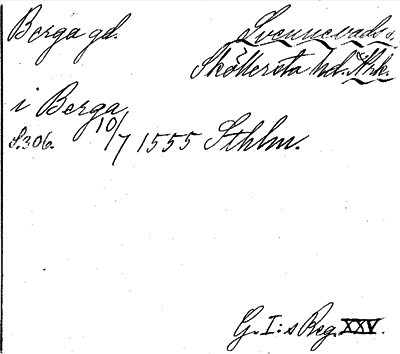 Berga gd. Svennevads s.
Sköllersta hd. Nke.
i Berga
S. 306. 10/7 1555 Sthlm.
G. I:s Reg. XXV.